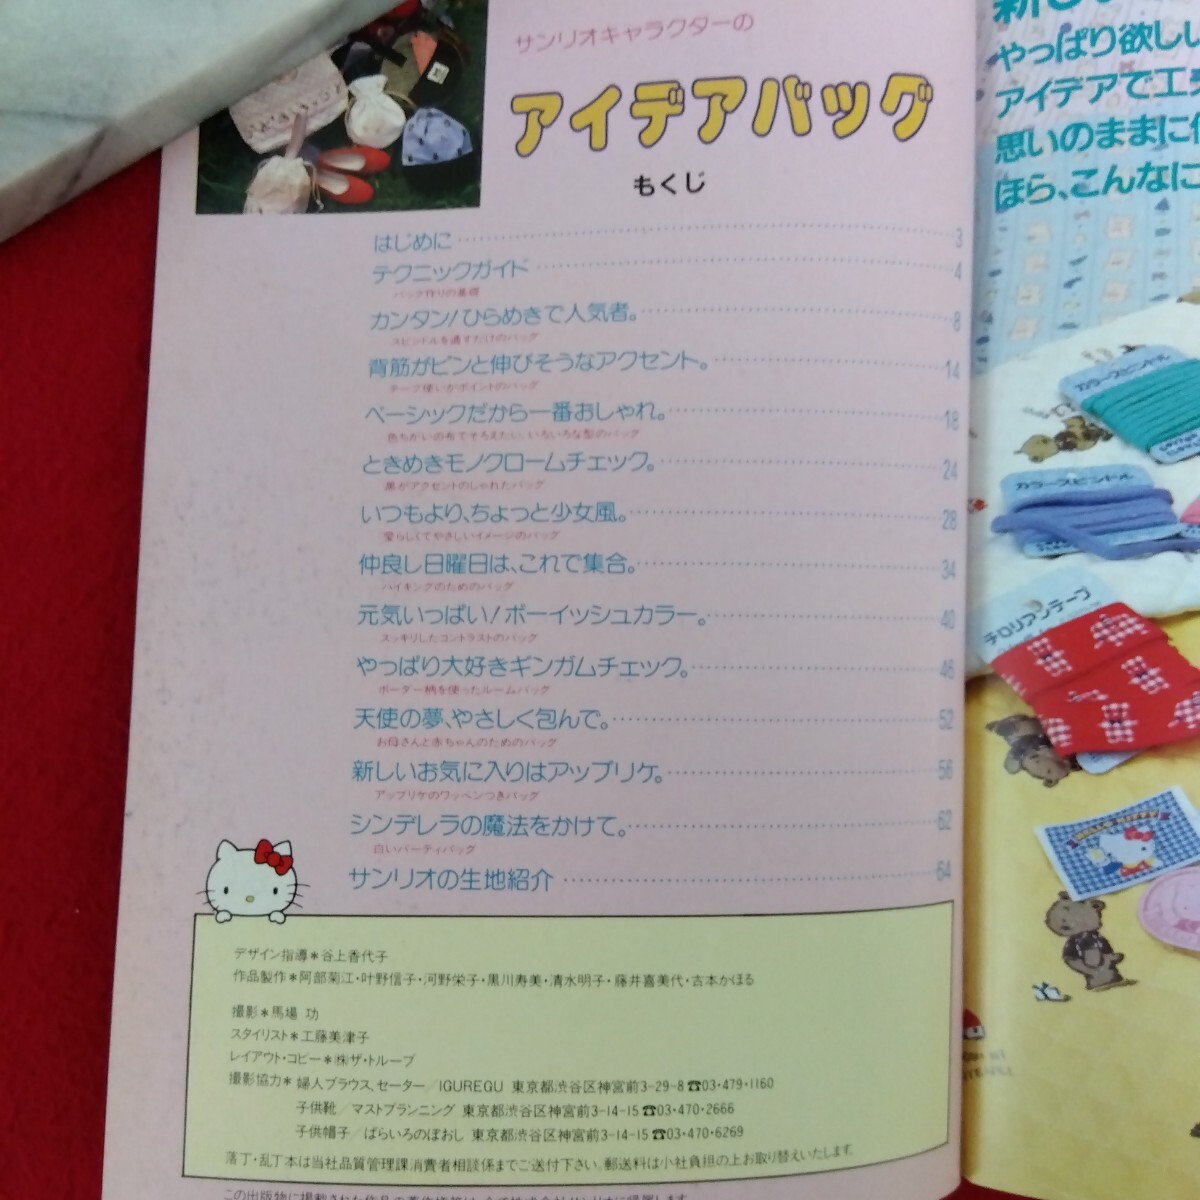 サンリオキャラクターの
アイデアバッグ
もくじ
はじめに 3
テクニックガイド 4
バッグ作りの基礎
カンタン!ひらめきで人気者。 8
スピンドルを通すだけのバッグ
背筋がピンと伸びそうなアクセント。 14
テープ使いがポイントのバッグ
ベーシックだから一番おしゃれ。 18
色ちがいの布でそろえたい、いろいろな型のバッグ
ときめきモノクロームチェック。 24
黒がアクセントのしゃれたバッグ
いつもより、ちょっと少女風。 28
愛らしくてやさしいイメージのバッグ
仲良し日曜日は、これで集合。 34
ハイキングのためのバッグ
元気いっぱい!ボーイッシュカラー。 40
スッキリしたコントラストのバッグ
やっぱり大好きギンガムチェック。 46
ボーダー柄を使ったルームバッグ
天使の夢、やさしく包んで。 52
お母さんと赤ちゃんのためのバッグ
新しいお気に入りはアップリケ。 56
アップリケのワッペンつきバッグ
シンデレラの魔法をかけて。 62
白いパーティバッグ
サンリオの生地紹介 64
デザイン指導＊谷上香代子
作品製作＊阿部菊江・叶野信子・河野栄子・黒川寿美・清水明子・藤井喜美代・古本かほる
撮影＊馬場 功
スタイリスト＊工藤美津子
レイアウト・コピー＊㈱ザ・トループ
撮影協力＊婦人ブラウス、セーター／IGUREGU 東京都渋谷区神宮前3-29-8☎03・479・1160
子供靴／マストプランニング 東京都渋谷区神宮前3-14-15☎03・470・2666
子供帽子／ばらいろのぼおし 東京都渋谷区神宮前3-14-15☎03・470・6269
落丁・乱丁本は当社品質管理課消費者相談係までご送付下さい。郵送料は小社負担の上お取り替えいたします。
やっぱり欲しい
アイデアで工
思いのままに
ほら、こんなに
カラースピンドル
カラースピンドル
チロリアンテープ
HELLO KITTY